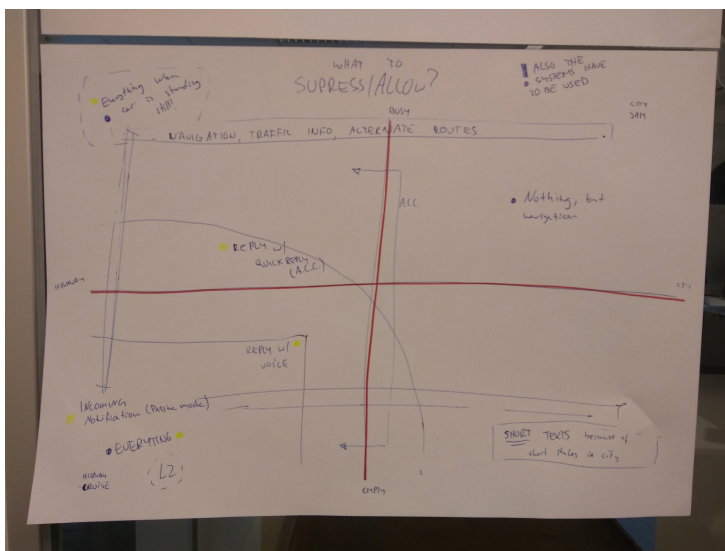 WHAT TO
SUPRESS/ALLOW?
! ALSO THE
SYSTEMS HAVE
TO BE USED
Everything when
car is standing
still!
BUSY
CITY
JAM
NAVIGATION, TRAFFIC INFO, ALTERNATE ROUTES
ACC
Nothing, but
navigation
REPLY w/
QUICK REPLY
(A.C.C.)
HIGHWAY
CITY
REPLY w/
VOICE
INCOMING
Notification (Passive mode)
EVERYTING
SHORT TEXTS because of
short states in city
HIGHWAY
CRUISE
L2
EMPTY